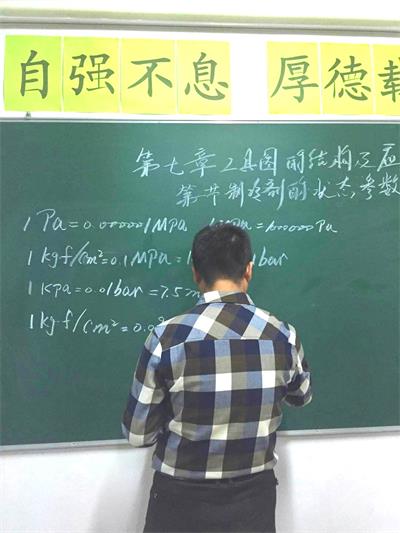 自强不息 厚德载
第七章 工具图的结构及应
第一节 制冷剂的状态参数
1Pa=0.000001MPa 1MPa=1000000Pa
1kgf/cm²=0.1MPa=1 bar
1KPa=0.01bar=7.5m
1kgf/cm²=0.9